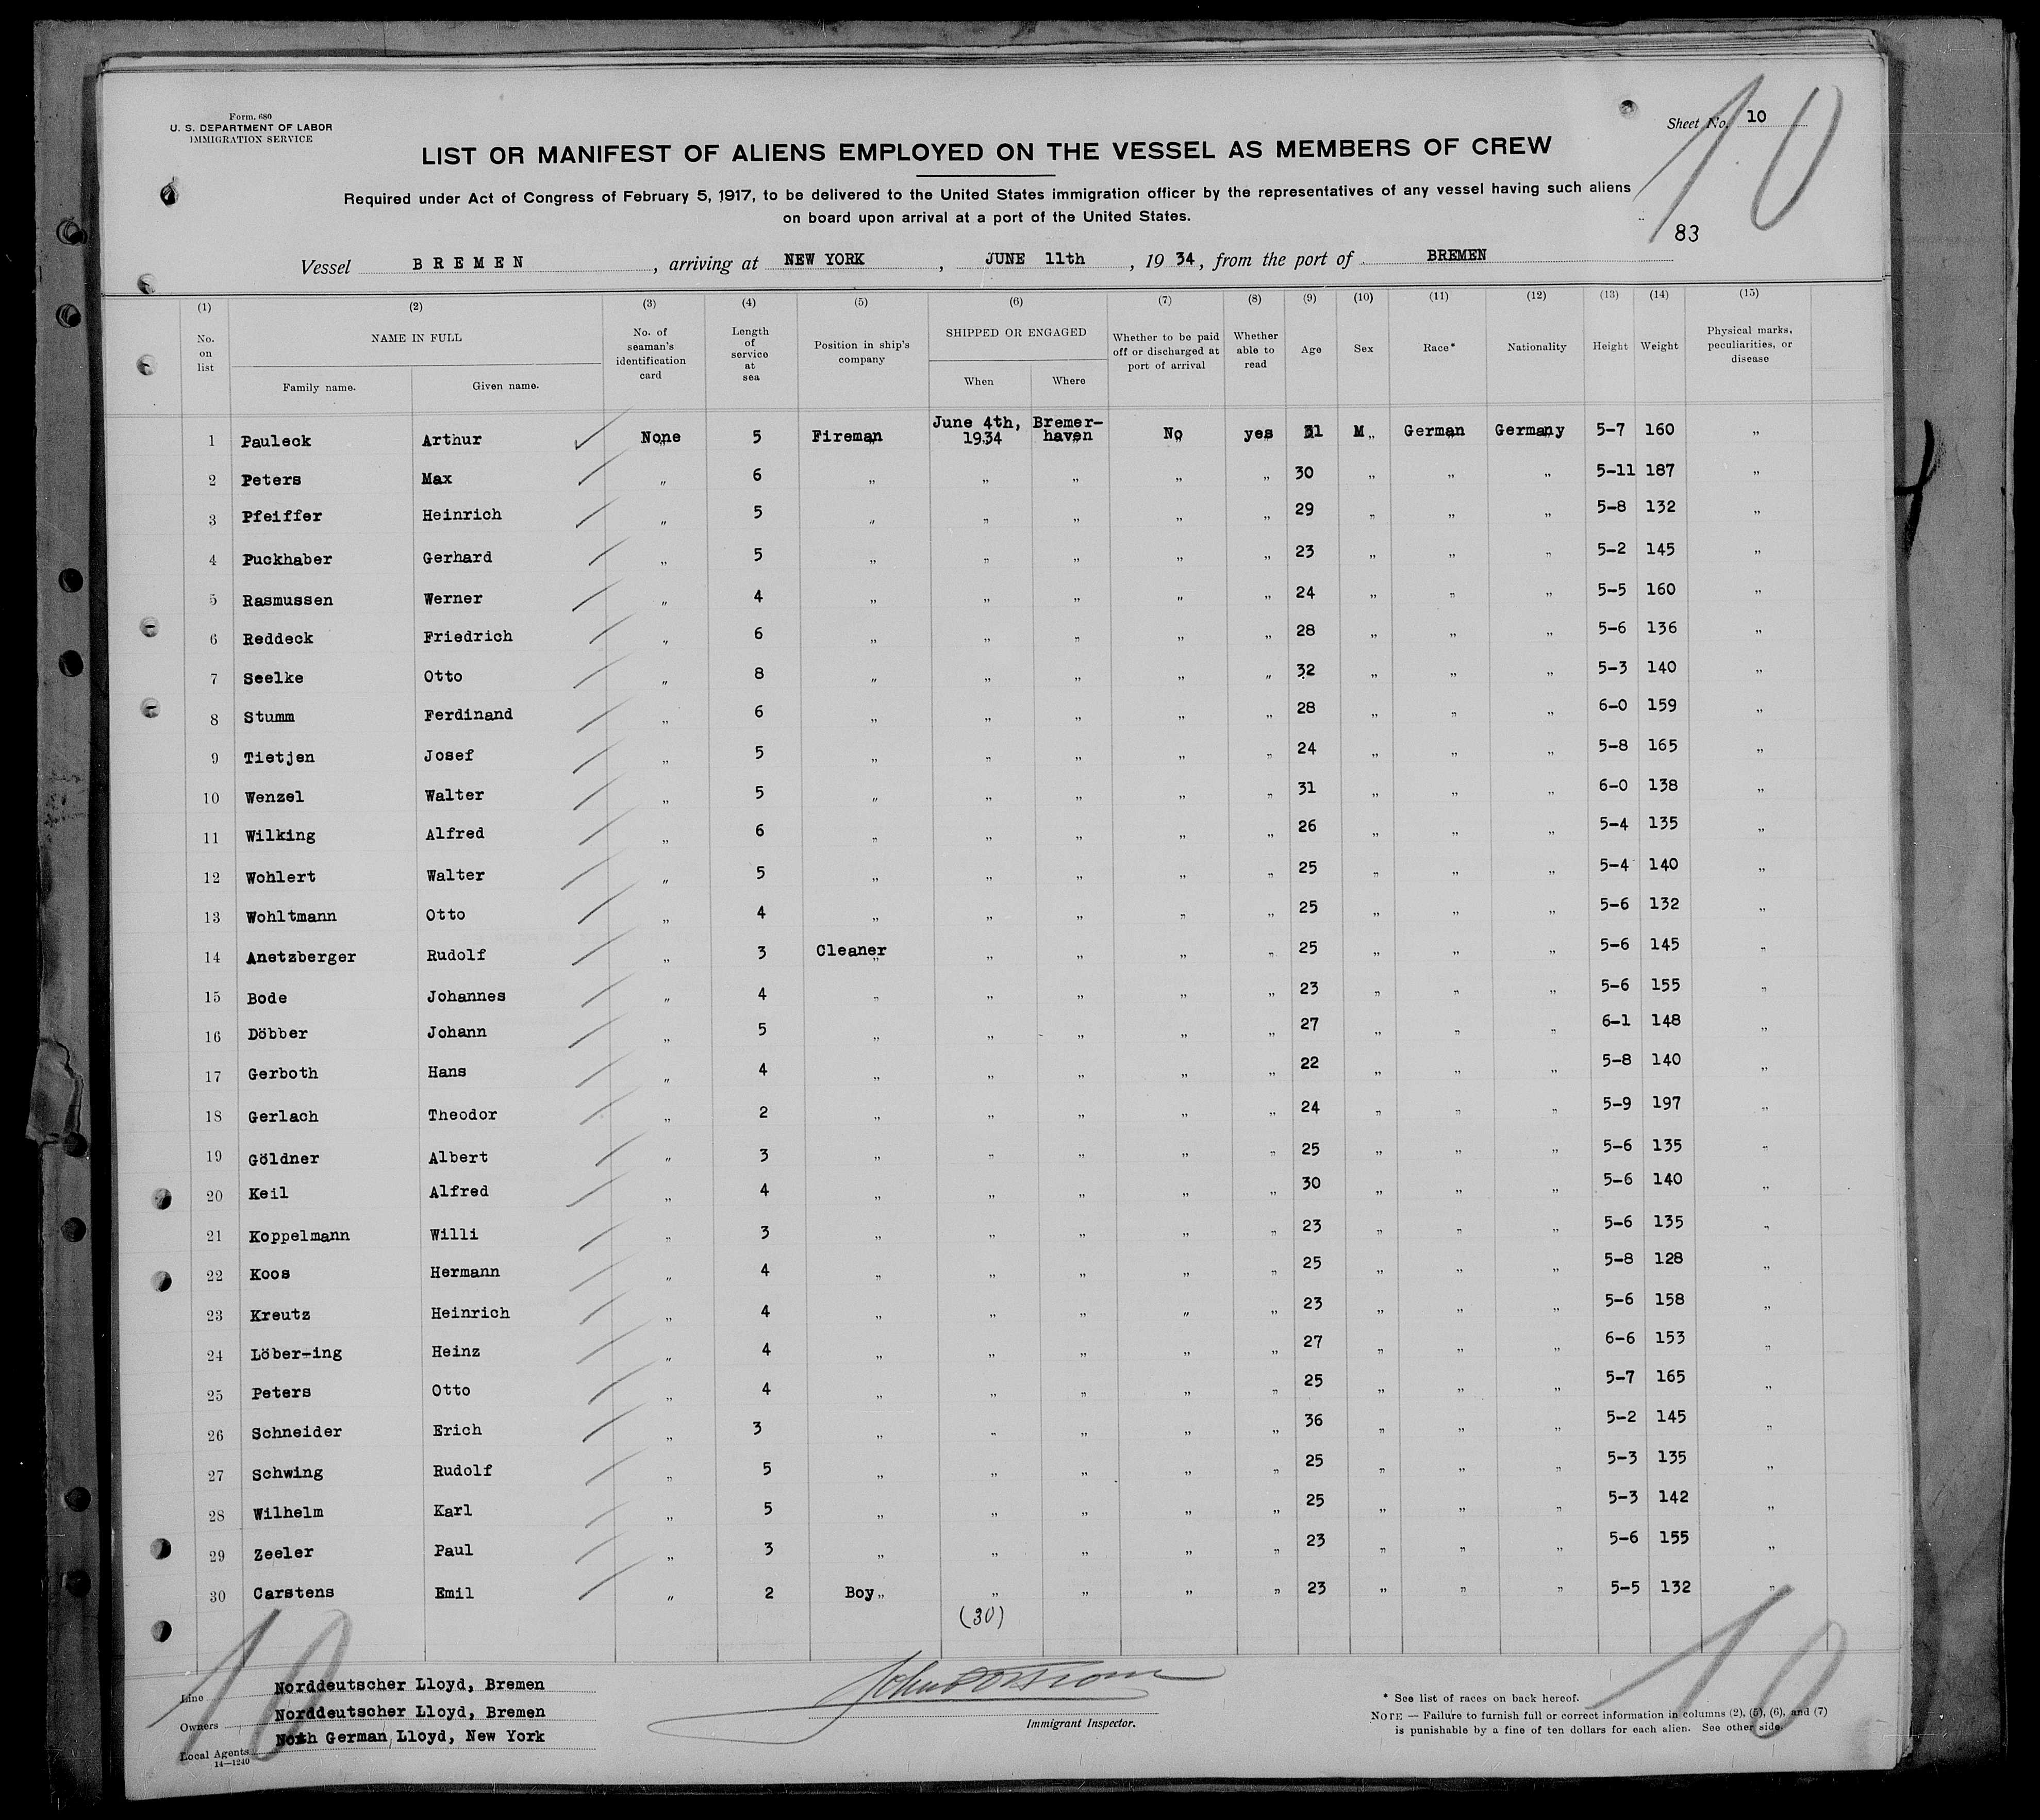 Form 680
U. S. DEPARTMENT OF LABOR
IMMIGRATION SERVICE
Sheet No. 10
10
LIST OR MANIFEST OF ALIENS EMPLOYED ON THE VESSEL AS MEMBERS OF CREW
Required under Act of Congress of February 5, 1917, to be delivered to the United States immigration officer by the representatives of any vessel having such aliens
on board upon arrival at a port of the United States.
83
Vessel BREMEN, arriving at NEW YORK, JUNE 11th, 1934, from the port of BREMEN
(1) (2) (3) (4) (5) (6) (7) (8) (9) (10) (11) (12) (13) (14) (15)
No. on list NAME IN FULL Family name. Given name. No. of seaman's identification card Length of service at sea Position in ship's company SHIPPED OR ENGAGED When Where Whether to be paid off or discharged at port of arrival Whether able to read Age Sex Race* Nationality Height Weight Physical marks, peculiarities, or disease
1 Pauleck Arthur ✓ None 5 Fireman June 4th, 1934 Bremer-haven No yes 31 M German Germany 5-7 160 „
2 Peters Max „ 6 „ „ „ „ „ 30 „ „ „ 5-11 187 „
3 Pfeiffer Heinrich „ 5 „ „ „ „ „ 29 „ „ „ 5-8 132 „
4 Puckhaber Gerhard „ 5 „ „ „ „ „ 23 „ „ „ 5-2 145 „
5 Rasmussen Werner „ 4 „ „ „ „ „ 24 „ „ „ 5-5 160 „
6 Reddeck Friedrich „ 6 „ „ „ „ „ 28 „ „ „ 5-6 136 „
7 Seelke Otto „ 8 „ „ „ „ „ 32 „ „ „ 5-3 140 „
8 Stumm Ferdinand „ 6 „ „ „ „ „ 28 „ „ „ 6-0 159 „
9 Tietjen Josef „ 5 „ „ „ „ „ 24 „ „ „ 5-8 165 „
10 Wenzel Walter „ 5 „ „ „ „ „ 31 „ „ „ 6-0 138 „
11 Wilking Alfred „ 6 „ „ „ „ „ 26 „ „ „ 5-4 135 „
12 Wohlert Walter „ 5 „ „ „ „ „ 25 „ „ „ 5-4 140 „
13 Wohltmann Otto „ 4 „ „ „ „ „ 25 „ „ „ 5-6 132 „
14 Anetzberger Rudolf „ 3 Cleaner „ „ „ „ 25 „ „ „ 5-6 145 „
15 Bode Johannes „ 4 „ „ „ „ „ 23 „ „ „ 5-6 155 „
16 Döbber Johann „ 5 „ „ „ „ „ 27 „ „ „ 6-1 148 „
17 Gerboth Hans „ 4 „ „ „ „ „ 22 „ „ „ 5-8 140 „
18 Gerlach Theodor „ 2 „ „ „ „ „ 24 „ „ „ 5-9 197 „
19 Göldner Albert „ 3 „ „ „ „ „ 25 „ „ „ 5-6 135 „
20 Keil Alfred „ 4 „ „ „ „ „ 30 „ „ „ 5-6 140 „
21 Koppelmann Willi „ 3 „ „ „ „ „ 23 „ „ „ 5-6 135 „
22 Koos Hermann „ 4 „ „ „ „ „ 25 „ „ „ 5-8 128 „
23 Kreutz Heinrich „ 4 „ „ „ „ „ 23 „ „ „ 5-6 158 „
24 Löber-ing Heinz „ 4 „ „ „ „ „ 27 „ „ „ 6-6 153 „
25 Peters Otto „ 4 „ „ „ „ „ 25 „ „ „ 5-7 165 „
26 Schneider Erich „ 3 „ „ „ „ „ 36 „ „ „ 5-2 145 „
27 Schwing Rudolf „ 5 „ „ „ „ „ 25 „ „ „ 5-3 135 „
28 Wilhelm Karl „ 5 „ „ „ „ „ 25 „ „ „ 5-3 142 „
29 Zeeler Paul „ 3 „ „ „ „ „ 23 „ „ „ 5-6 155 „
30 Carstens Emil „ 2 Boy „ „ „ „ 23 „ „ „ 5-5 132 „
(30)
10
10
Line Norddeutscher Lloyd, Bremen
Owners Norddeutscher Lloyd, Bremen
Local Agents North German Lloyd, New York
14—1240
Immigrant Inspector.
* See list of races on back hereof.
NOTE — Failure to furnish full or correct information in columns (2), (5), (6), and (7)
is punishable by a fine of ten dollars for each alien. See other side.